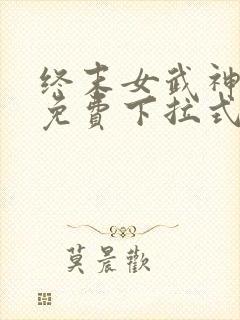 终末女武神
免費下拉式
莫晨歡